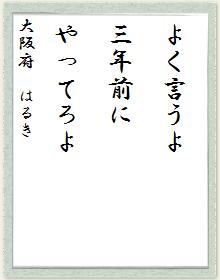 よく言うよ
三年前に
やってろよ
大阪府　はるき